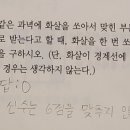 같은 과녁에 화살을 쏘아서 맞힌 부분
로 받는다고 할 때, 화살을 한 번 쏘
을 구하시오. (단, 화살이 경계선에
경우는 생각하지 않는다.)
답:0
6점을 맞추지